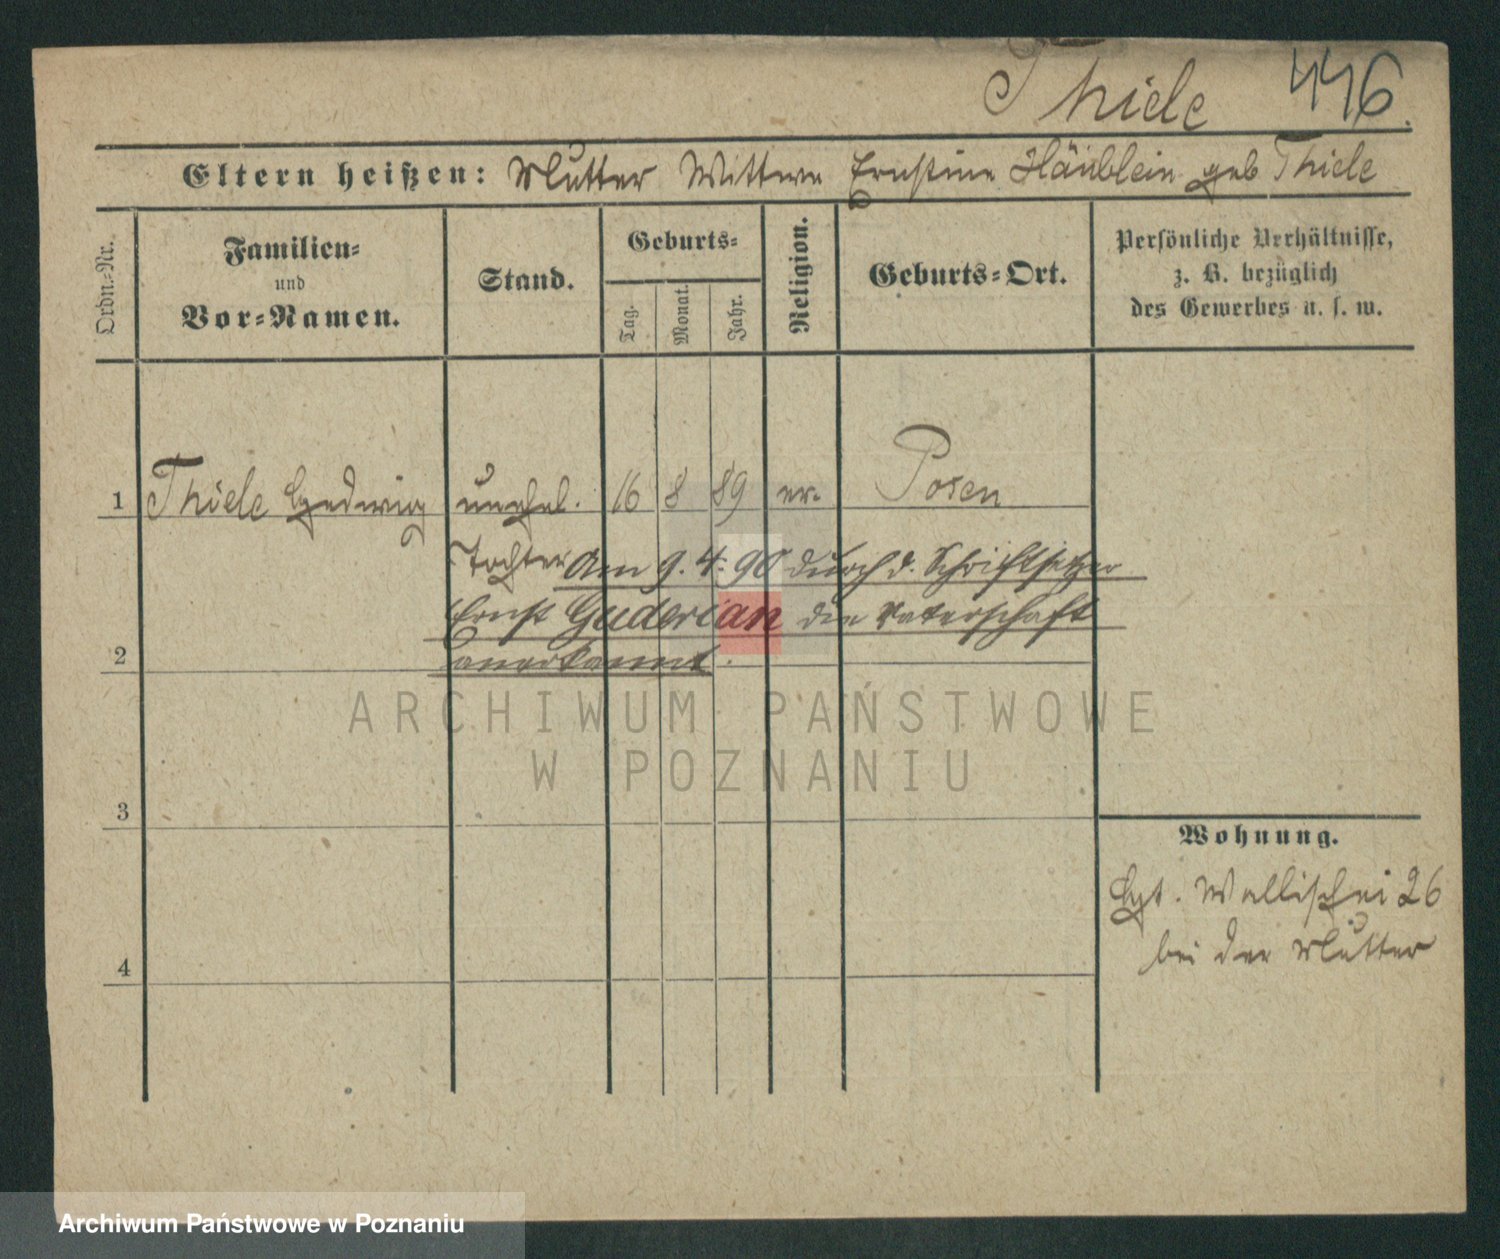 Thiele 446.
Eltern heißen: Mutter Wittwe Ernstine Häublein geb Thiele
Ordn.-Nr.
Familien-
und
Vor-Namen.
Stand.
Geburts-
Tag.
Monat.
Jahr.
Religion.
Geburts-Ort.
Persönliche Verhältnisse,
z. B. bezüglich
des Gewerbes u. s. w.
1 Thiele Hedwig unehel. 16 8 89 ev. Posen
Tochter Am 9. 4. 90 durch d. Schriftsetzer
Ernst Guderian die Vaterschaft
2 anerkannt.
3
4
Wohnung.
Wallischei 26
bei der Mutter
ARCHIWUM PAŃSTWOWE
W POZNANIU
Archiwum Państwowe w Poznaniu